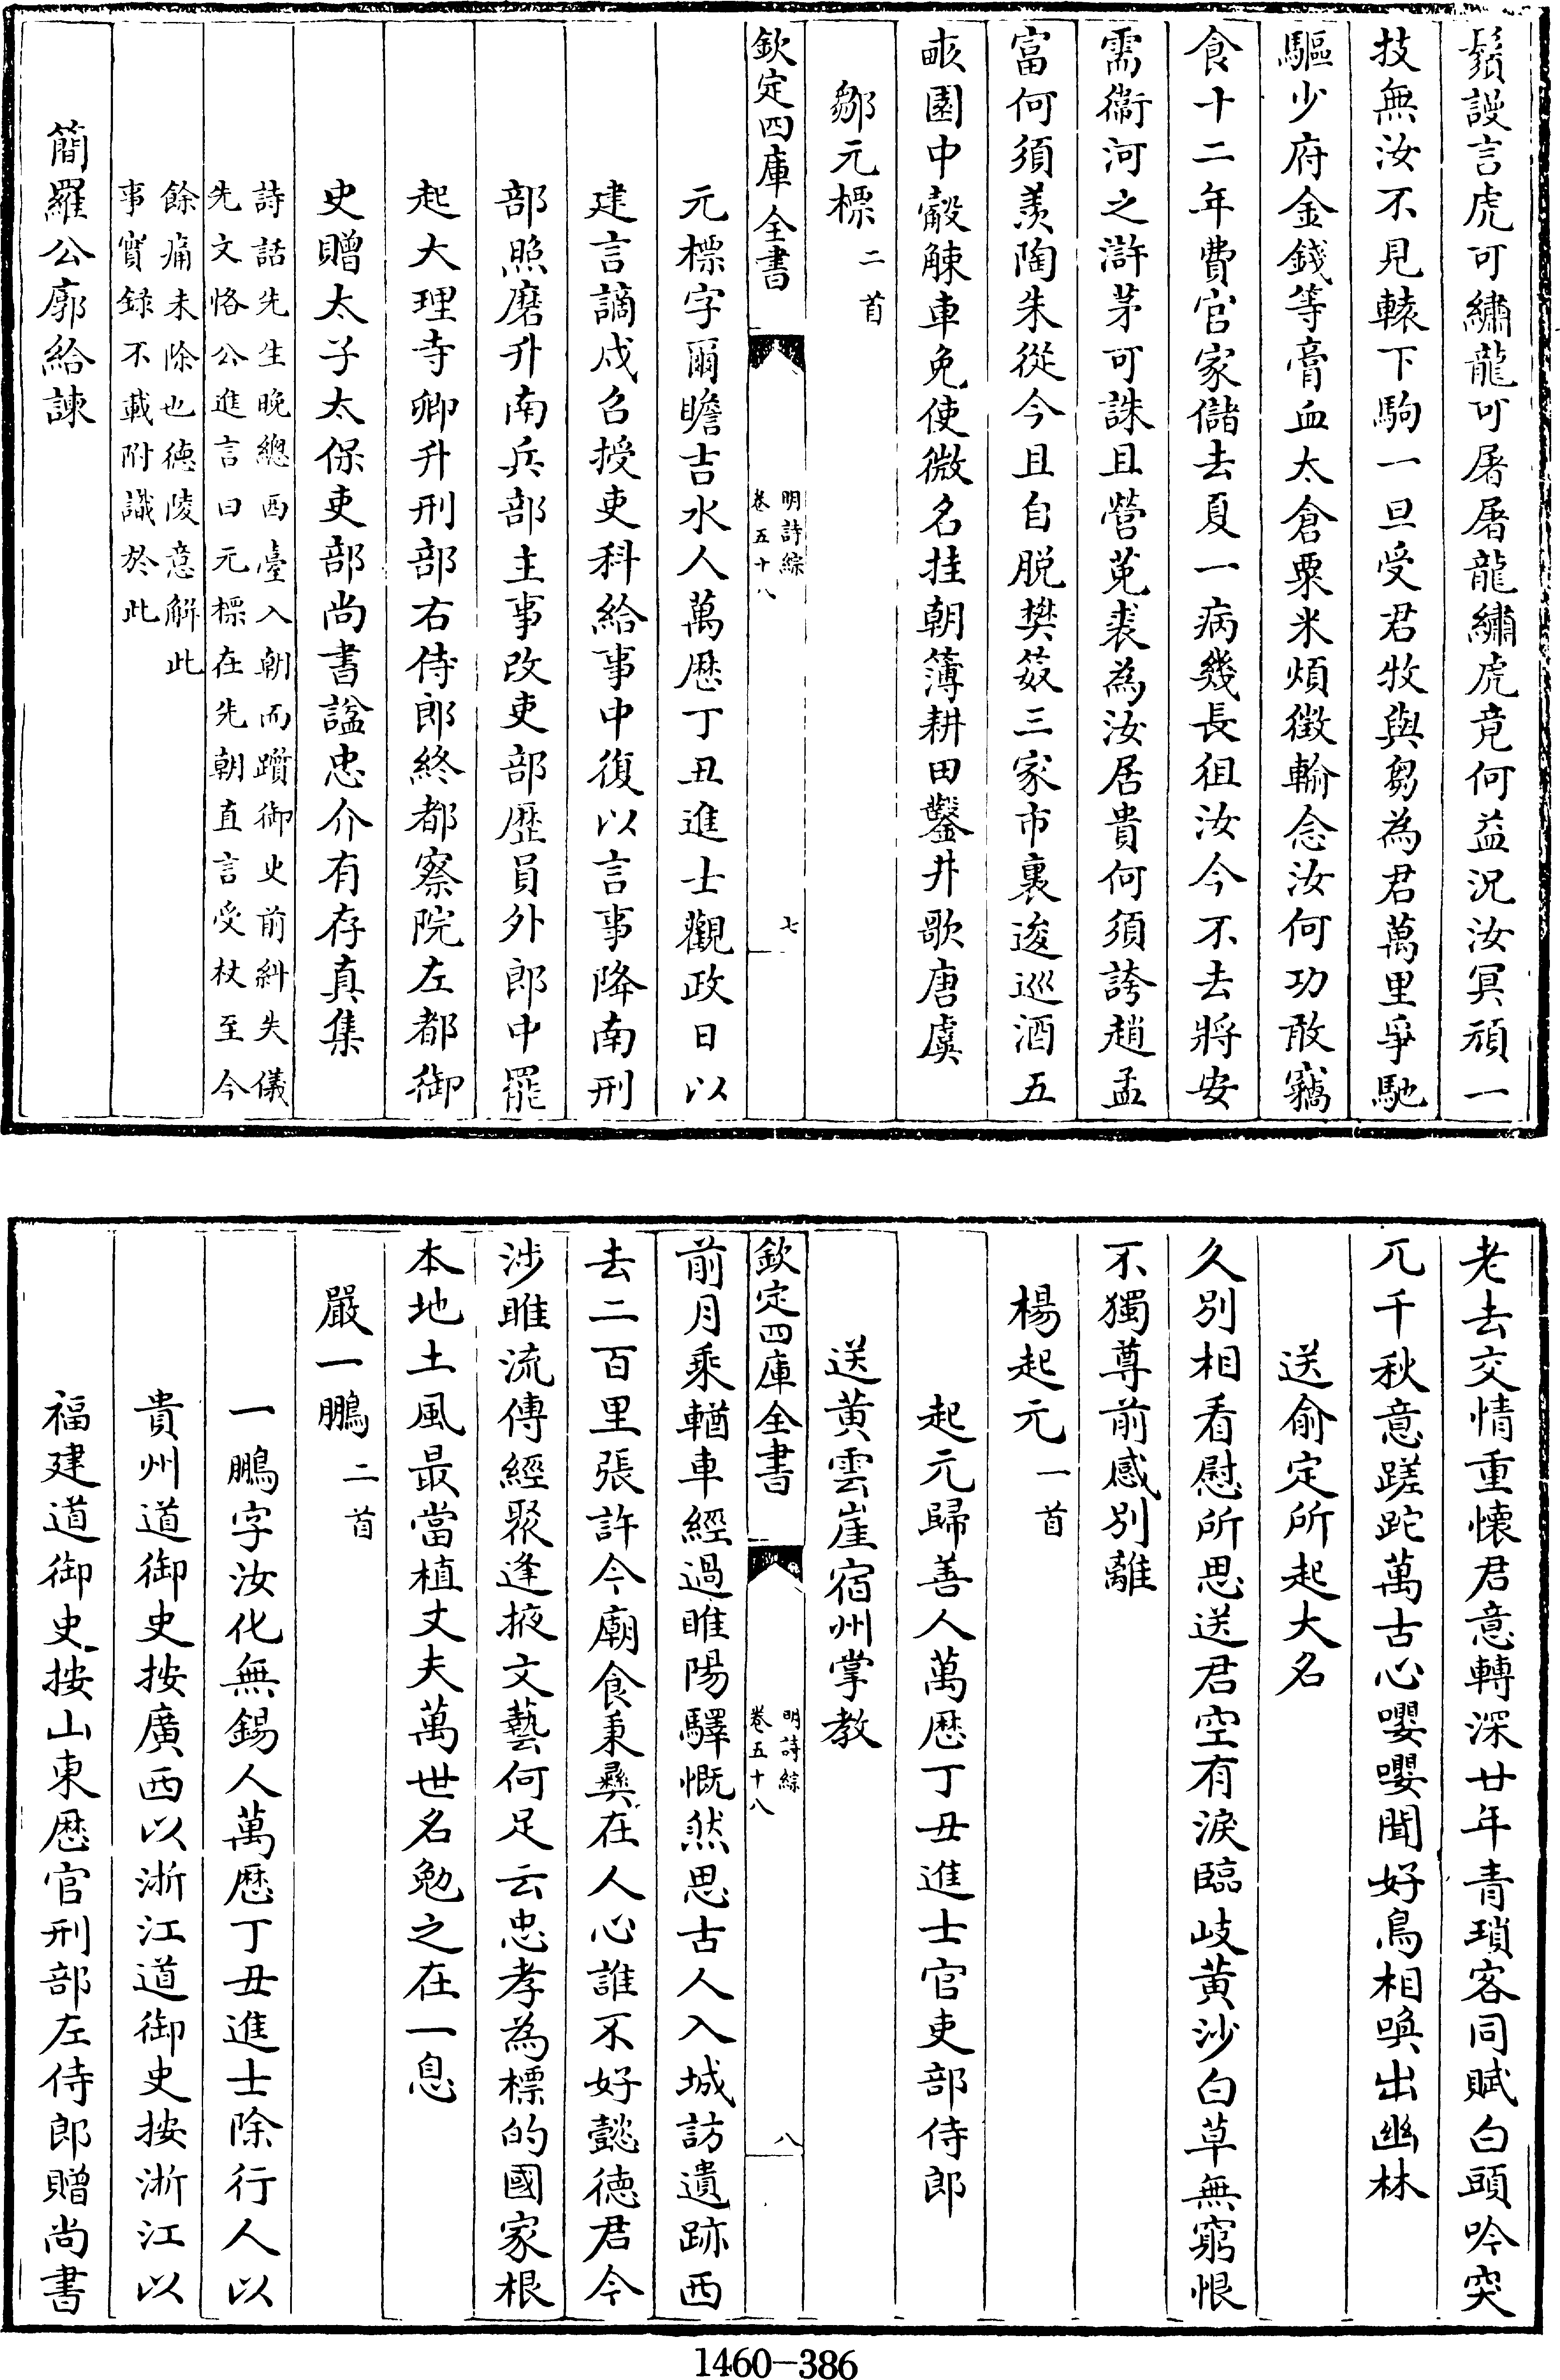 鬚謾言虎可繡龍可屠屠龍繡虎竟何益況汝冥頑一
技無汝不見轅下駒一旦受君牧與芻為君萬里爭馳
驅少府金錢等膏血太倉粟米煩徵輸念汝何功敢竊
食十二年費官家儲去夏一病幾長徂汝今不去將安
需衞河之滸茅可誅且營菟裘為汝居貴何須誇趙孟
富何須羨陶朱從今且自脱樊笯三家市裏逡巡酒五
畝園中觳觫車免使微名挂朝簿耕田鑿井歌唐虞
鄒元標二首
欽定四庫全書
明詩綜
卷五十八
七
元標字爾瞻吉水人萬厯丁丑進士觀政日以
建言謫戍召授吏科給事中復以言事降南刑
部照磨升南兵部主事改吏部歷員外郎中罷
起大理寺卿升刑部右侍郎終都察院左都御
史贈太子太保吏部尚書諡忠介有存真集
詩話先生晚總西臺入朝而躓御史前糾失儀
先文恪公進言曰元標在先朝直言受杖至今
餘痛未除也德陵意解此
事實録不載附識於此
簡羅公廓給諫
老去交情重懷君意轉深廿年青瑣客同賦白頭吟突
兀千秋意蹉跎萬古心嚶嚶聞好鳥相喚出幽林
送俞定所起大名
久別相看慰所思送君空有淚臨岐黄沙白草無窮恨
不獨尊前感別離
楊起元一首
起元歸善人萬厯丁丑進士官吏部侍郎
送黄雲崖宿州掌教
欽定四庫全書
明詩綜
卷五十八
八
前月乘輶車經過睢陽驛慨然思古人入城訪遺跡西
去二百里張許今廟食秉彞在人心誰不好懿德君今
涉睢流傳經聚逢掖文藝何足云忠孝為標的國家根
本地土風最當植丈夫萬世名勉之在一息
嚴一鵬二首
一鵬字汝化無錫人萬厯丁丑進士除行人以
貴州道御史按廣西以浙江道御史按浙江以
福建道御史按山東厯官刑部左侍郎贈尚書
1460—386